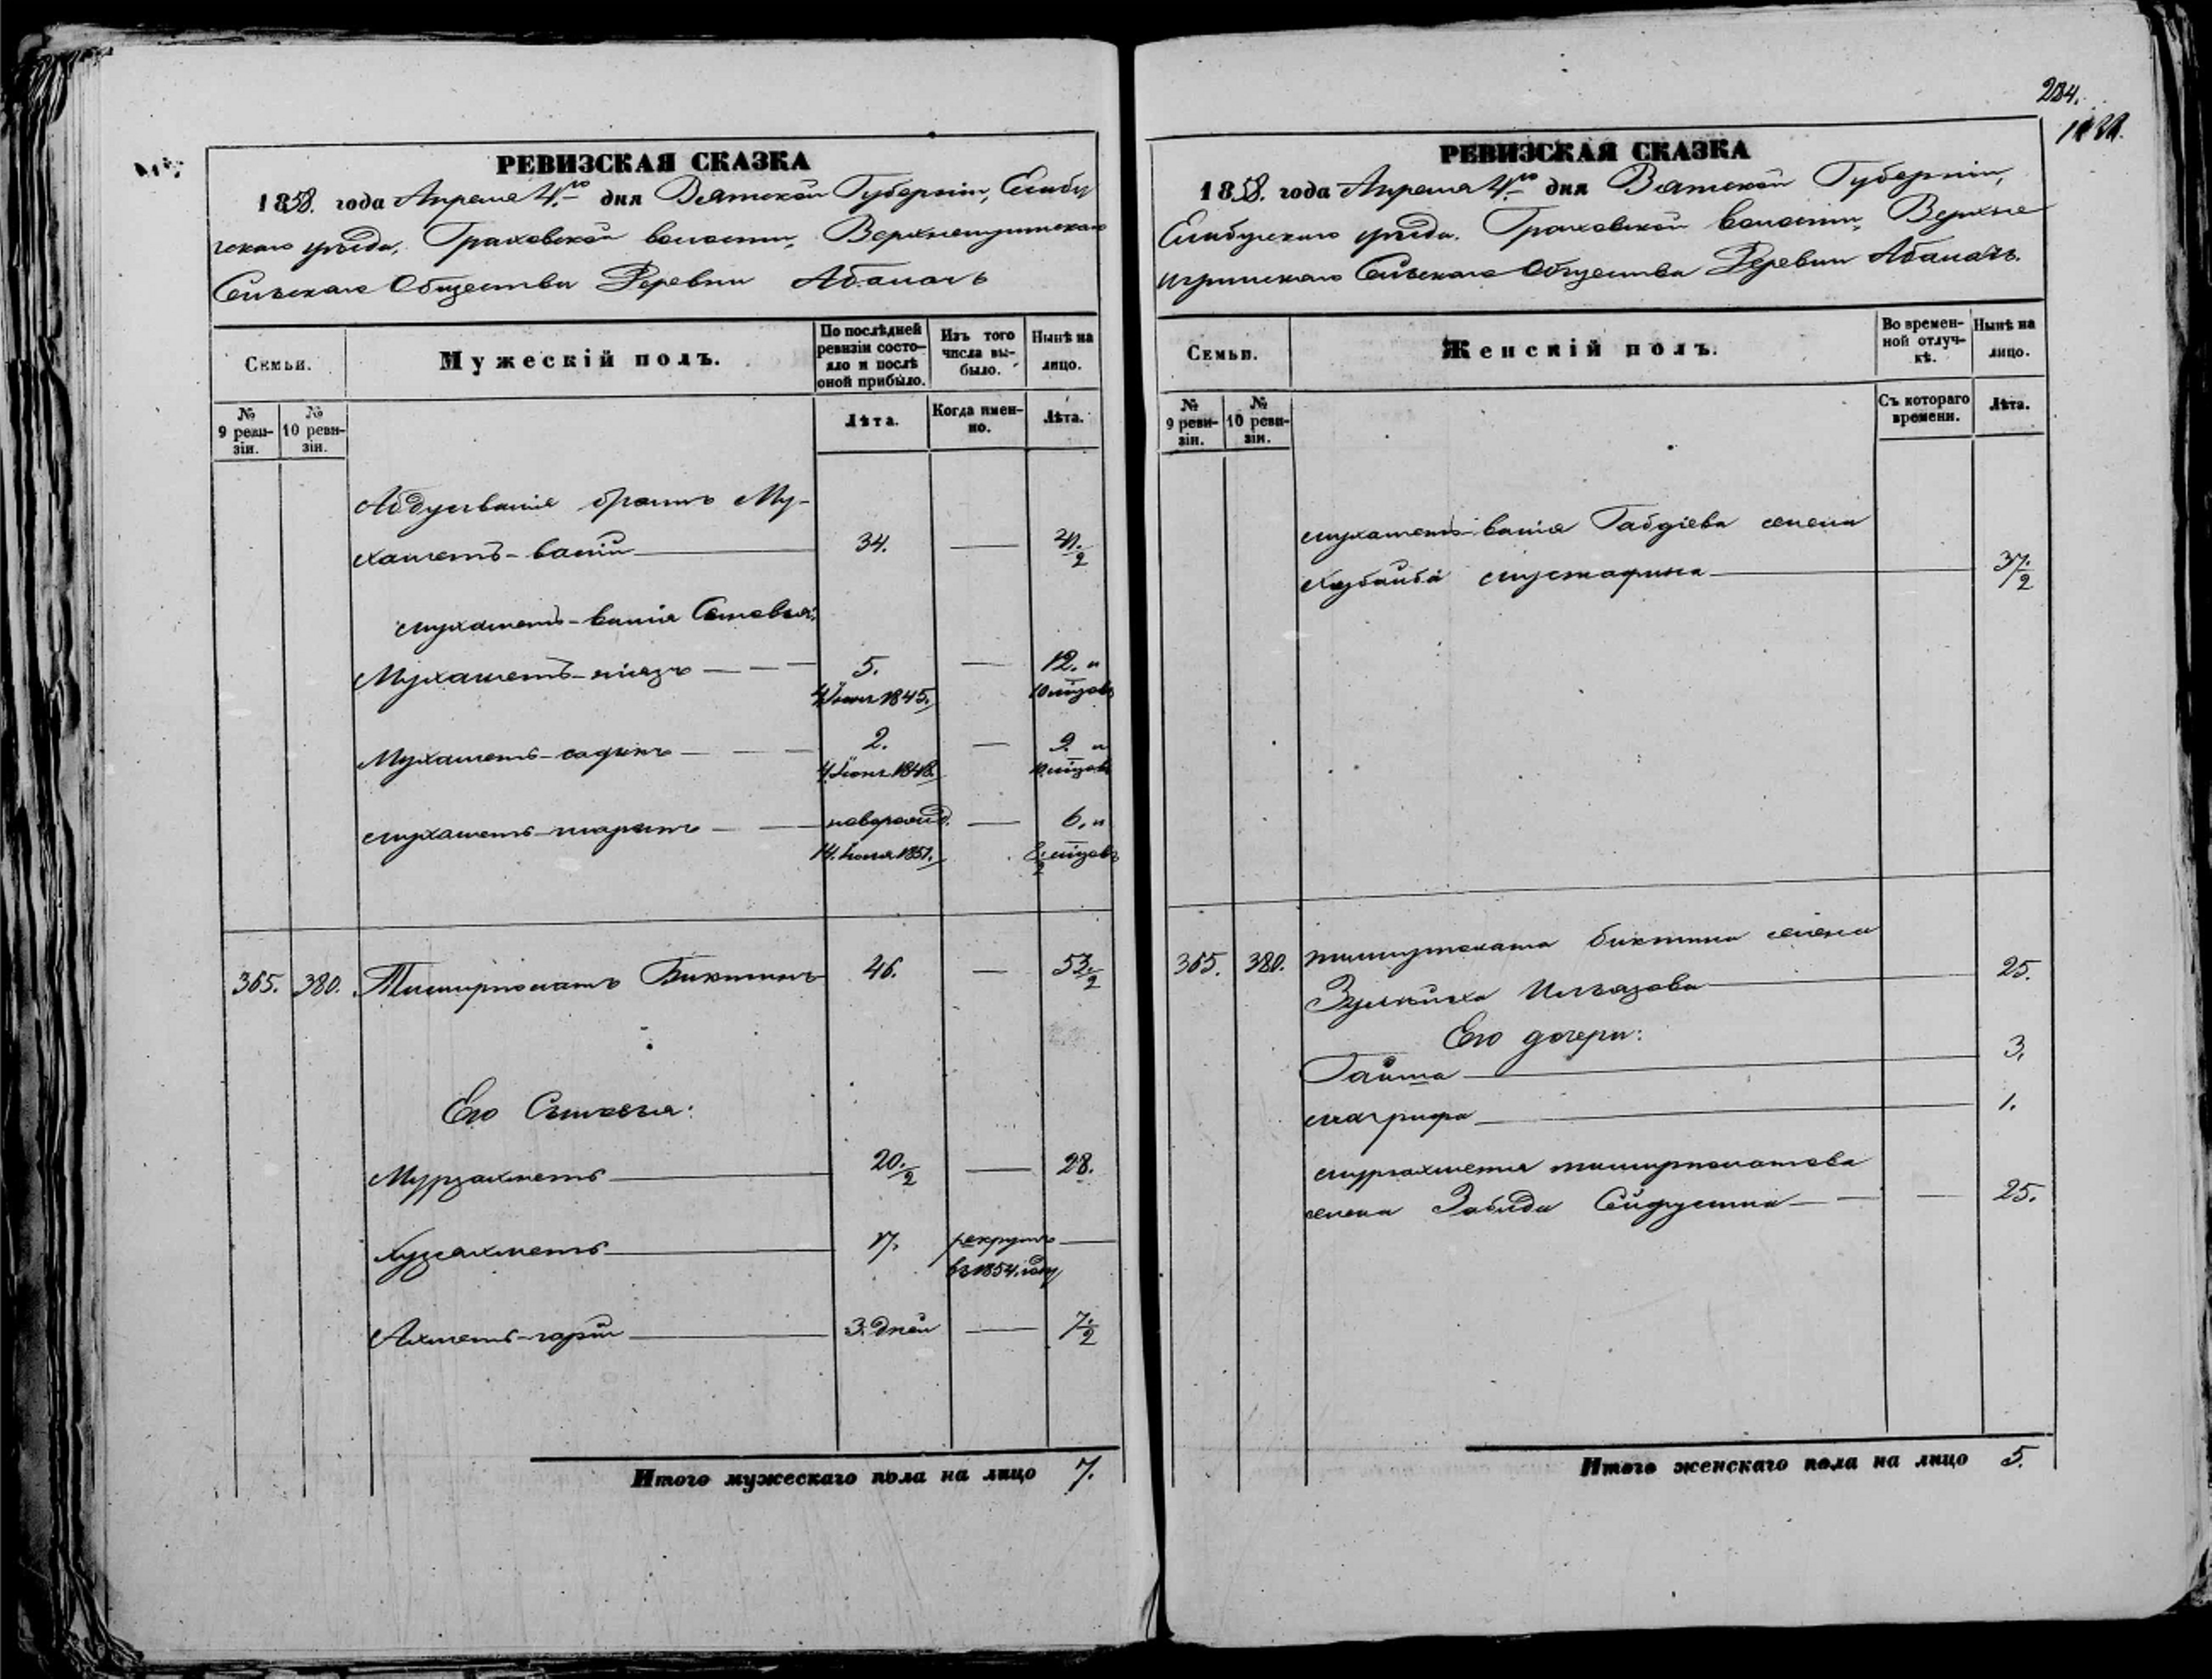 284.
РЕВИЗСКАЯ СКАЗКА
1858. года Апреля 4го дня Вятской Губерніи, Елабу
гскаго уѣзда, Граховской волости, Верхнеигринскаго
Сельскаго Общества Деревни Абалачь
Семьи.
Мужескій полъ.
По послѣдней ревизіи состо-
яло и послѣ оной прибыло.
Изъ того числа вы-
было.
Нынѣ на лицо.
№ 9 реви-
зіи.
№ 10 реви-
зіи.
Лѣта.
Когда имен-
но.
Лѣта.
братъ Му-
хаметъ-валій 34. — 41. 1/2
Мухаметъ-валія Сыновья:
Мухаметъ- 5. — 12. и
4 Іюня 1845. 10 мѣсяцовъ
Мухаметъ-садыкъ — 2. — 9. и
4 Іюня 1848. 10 мѣсяцовъ
Мухаметъ-шарипъ — новорожд. — 6. и
14. 1851. 8 1/2 мѣсяцовъ
365. 380. Тимирполатъ Биктинъ 46. — 53. 1/2
Его Сыновья:
Мурзахметъ 20. 1/2 — 28.
Хузяхметъ 17. рекрутъ —
въ 1854. году
Ахметъ-гарій 3. дней — 7. 1/2
Итого мужескаго пола на лицо 7.
РЕВИЗСКАЯ СКАЗКА
1858. года Апреля 4го дня Вятской Губерніи,
Елабугскаго уѣзда. Граховской волости, Верхне
игринскаго Сельскаго Общества Деревни Абалачь.
Семьи.
Женскій полъ.
Во времен-
ной отлуч-
кѣ.
Нынѣ на лицо.
№ 9 реви-
зіи.
№ 10 реви-
зіи.
Съ котораго времени.
Лѣта.
Мухаметъ-валія Габдіева жена
Мустафина 37. 1/2
365. 380. Тимирполата Биктина жена
Ильязова 25.
Его дочери:
3.
Магрифа 1.
Мурзахметя Тимирполатова
жена Забида — — 25.
Итого женскаго пола на лицо 5.